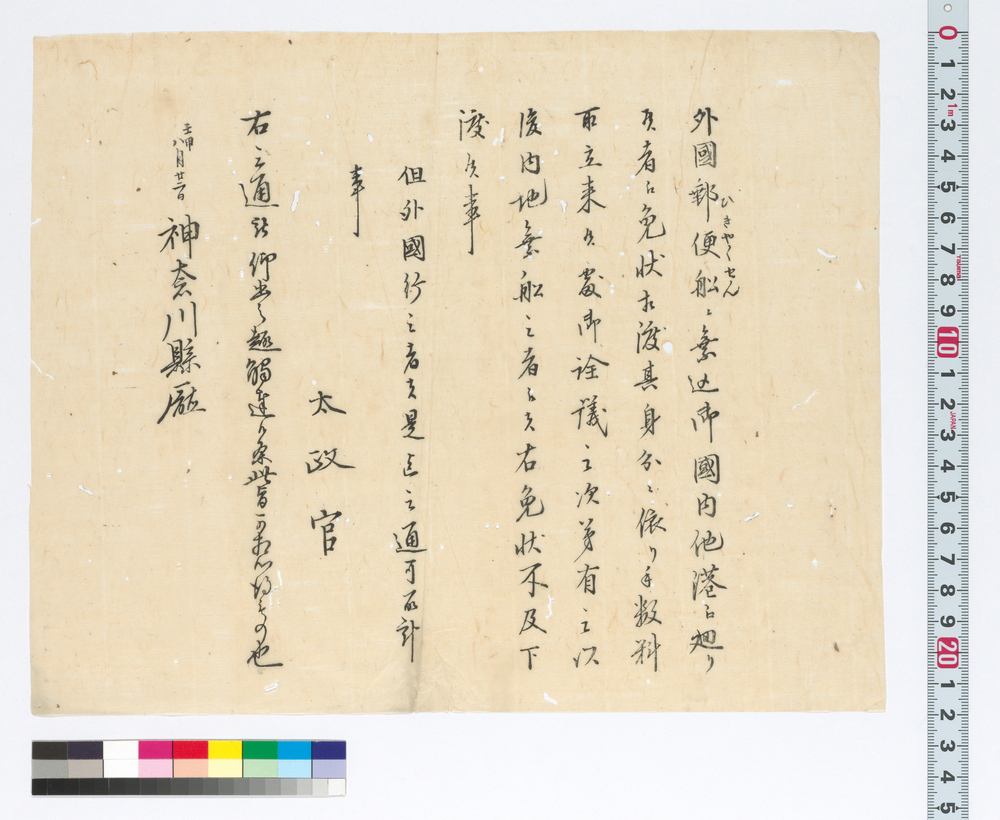 外國郵便船ニ乗込御國内他港江廻り
ひきやくせん
候者江免状相渡其身分ニ依り手数料
取立来候處御詮議之次第有之以
後内地乗船之者江者右免状不及下
渡候事
但外國行之者者是迄之通可取計
事
太政官
右之通被仰出候趣觸達候条此旨可相心得もの也
壬申八月廿二日
神奈川縣廳
0 1 2 3 4 5 6 7 8 9 10 1 2 3 4 5 6 7 8 9 20 1 2 3 4 5
1m
JAPAN